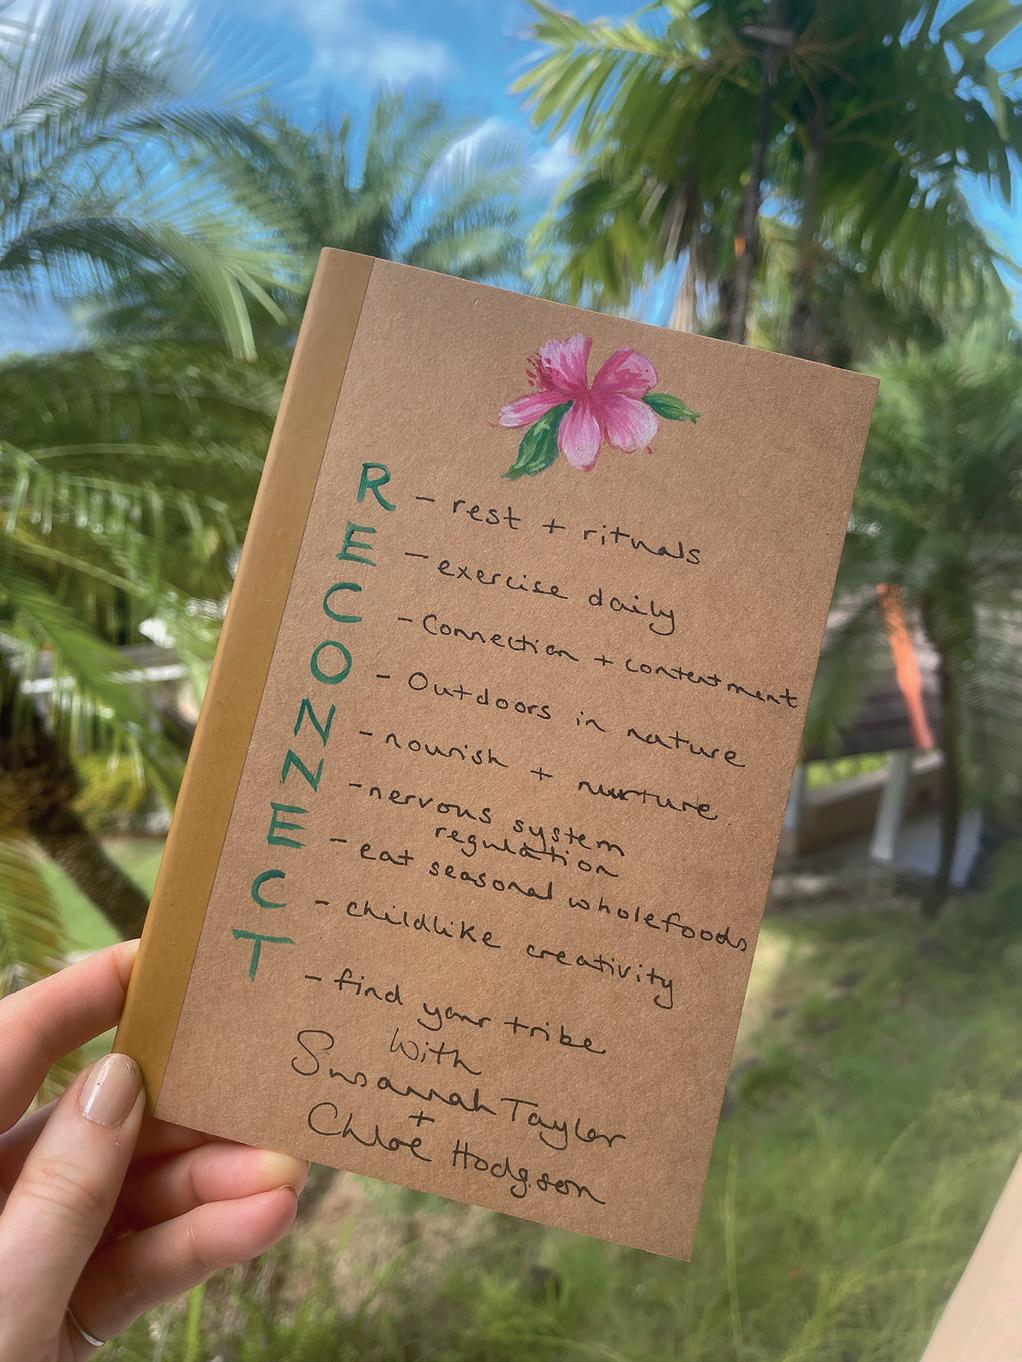 R - rest + rituals
E - exercise daily
C - Connection + contentment
O - Outdoors in nature
N - nourish + nurture
N - nervous system
regulation
E - eat seasonal wholefoods
C - childlike creativity
T - find your tribe
With
Susannah Taylor
+
Chloë Hodgson